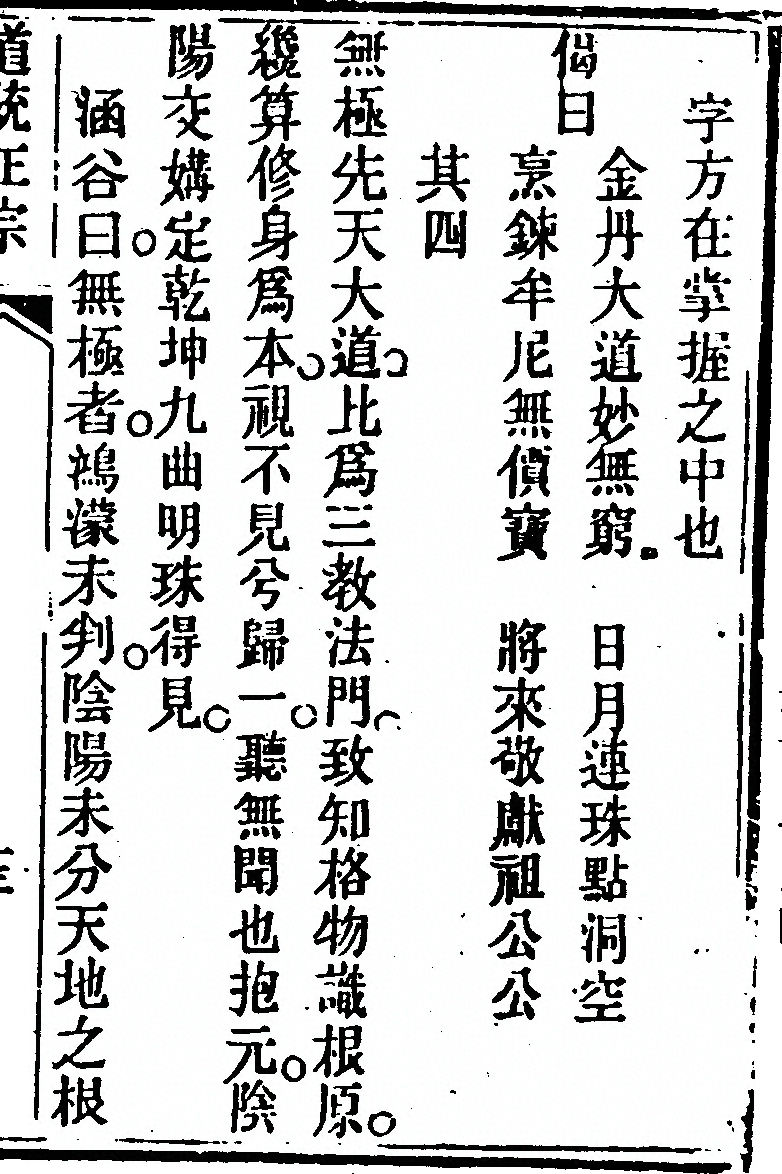 字方在掌握之中也
偈曰
金丹大道妙無窮。 日月連珠點洞空
烹鍊牟尼無價寶 將來敬獻祖公公
其四
無極先天大道。比爲三教法門。致知格物識根原。
纔算修身爲本。視不見兮歸一。聽無聞也抱元。陰
陽交媾定乾坤九曲明珠得見。
涵谷曰。無極者。鴻濛未判。陰陽未分天地之根
道統正宗